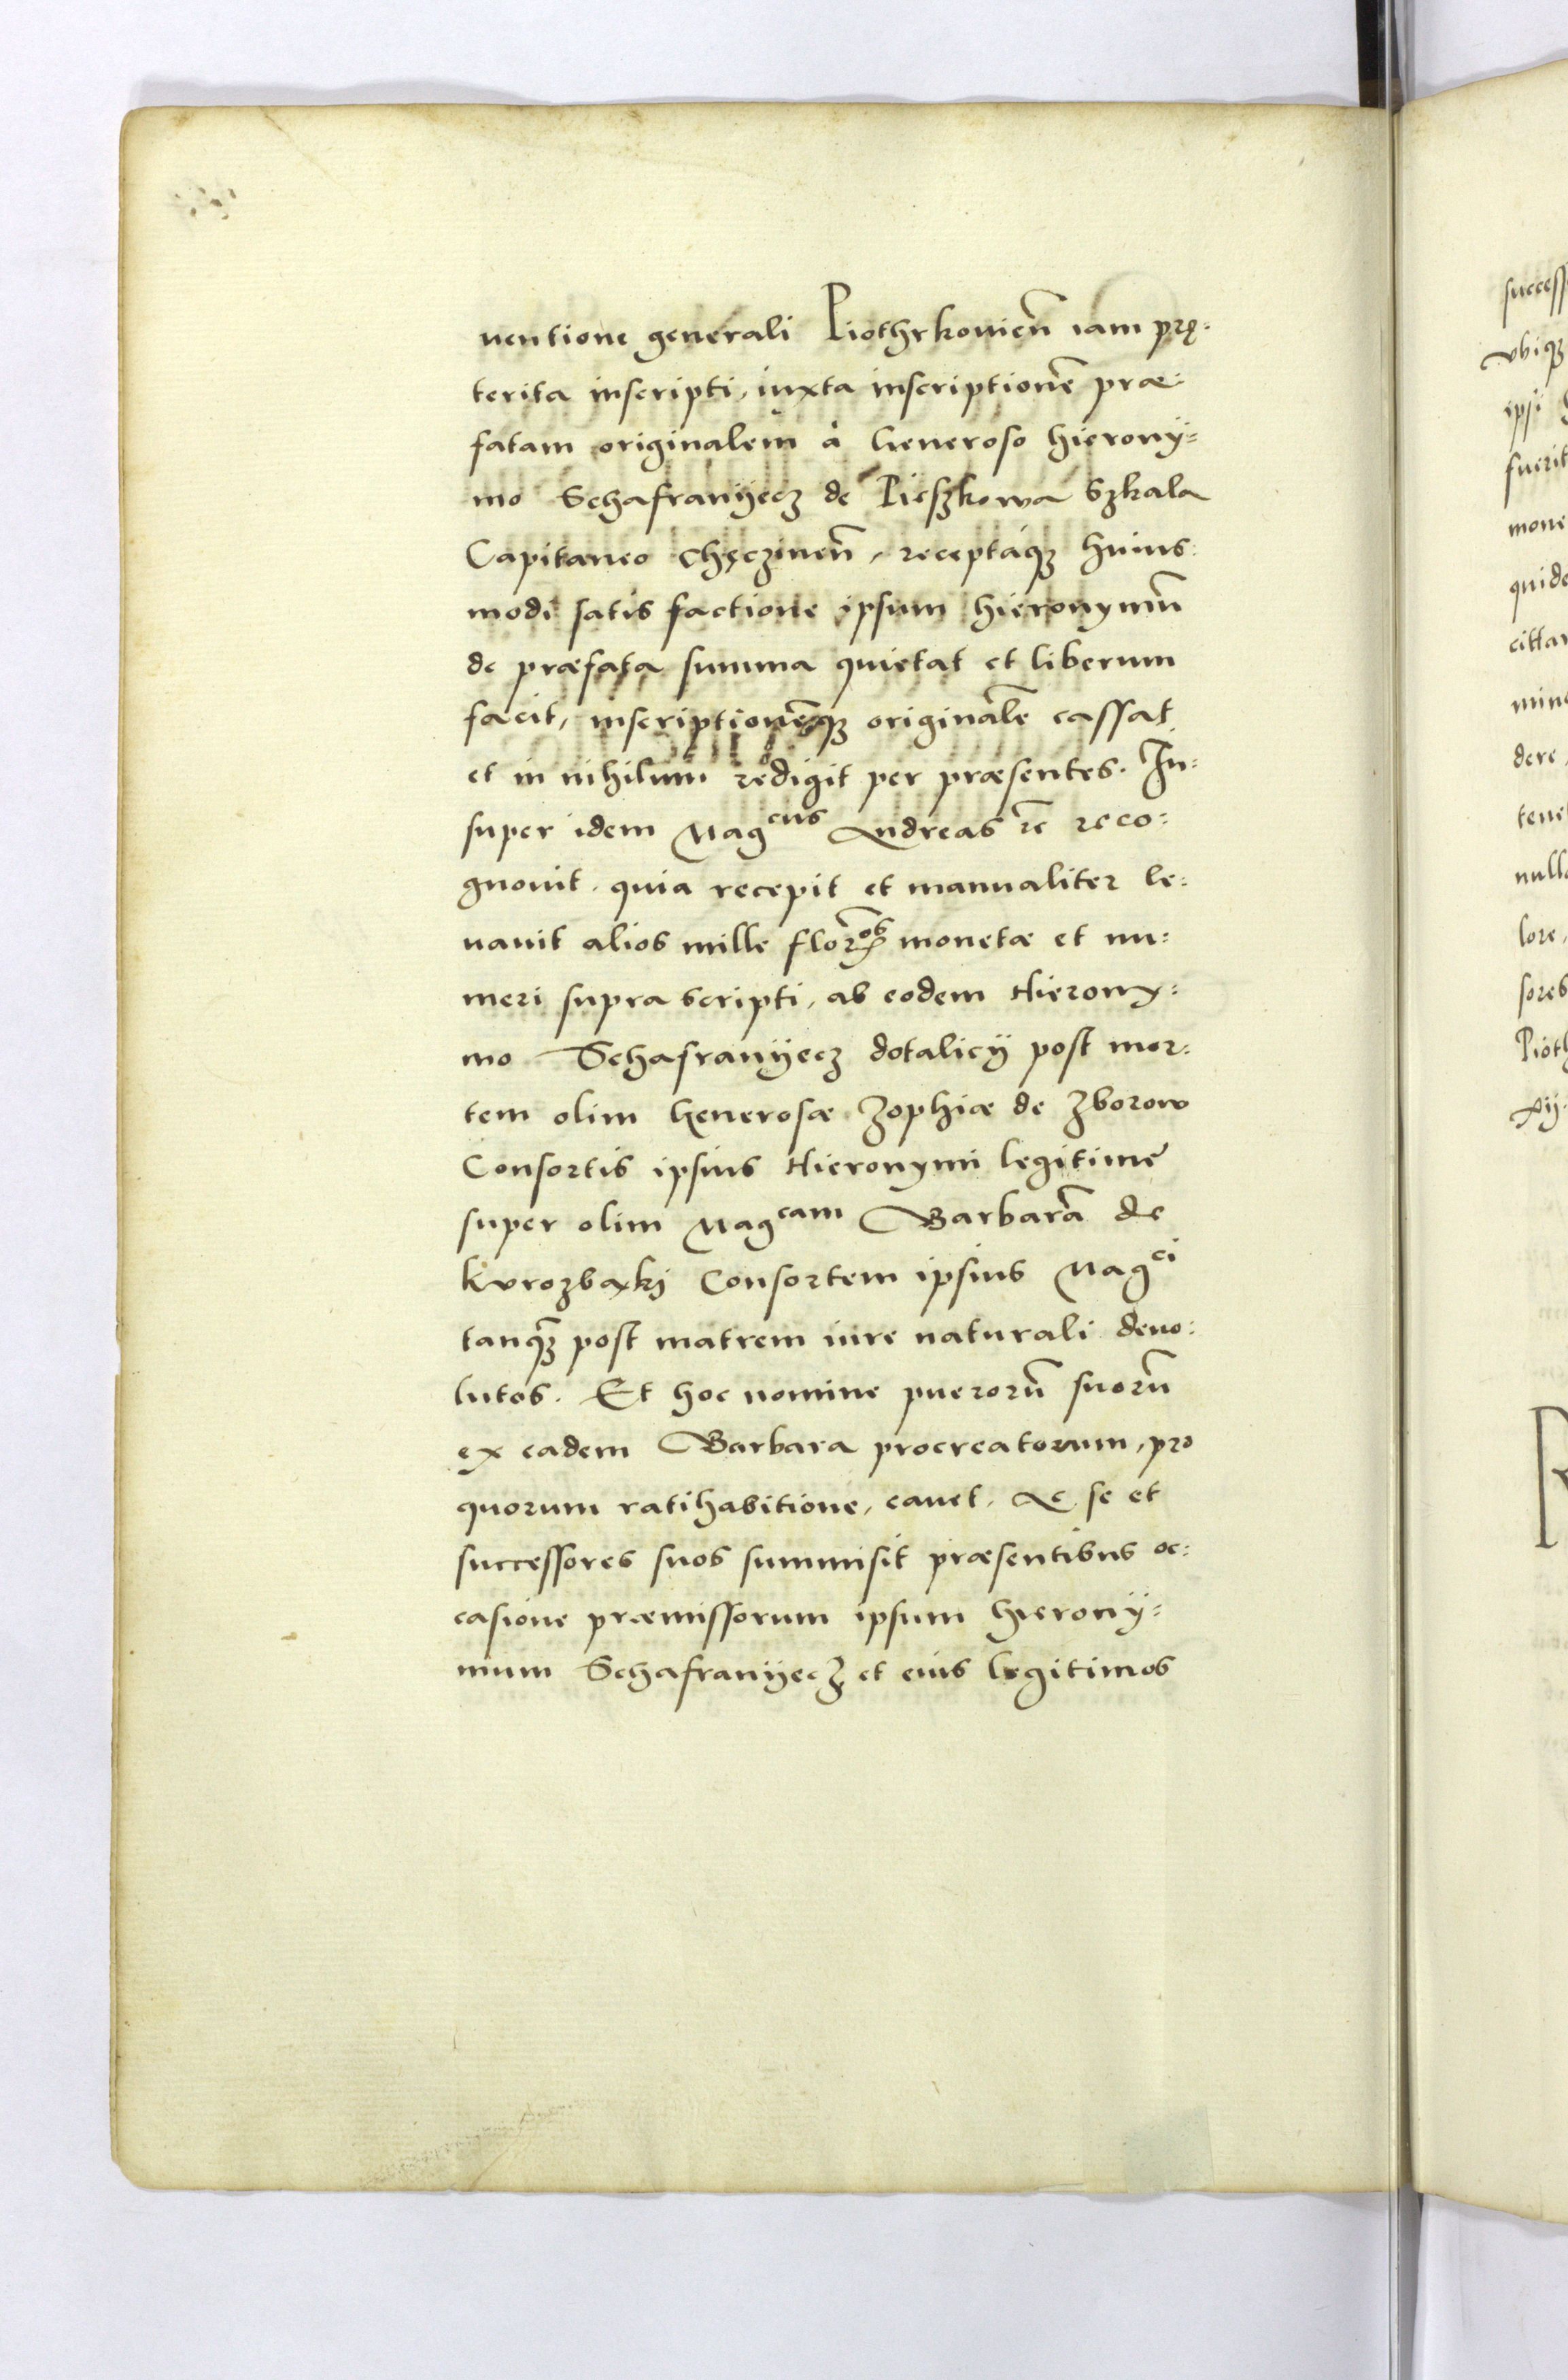 uentione generali Piothrkouieñ iam prę:
terita inscripti, iuxta inscriptionẽ præ:
fatam originalem à Generoso Hierony:
mo Schafranyecz de Pieszkowa Szkala
Capitaneo Chęczineñ, receptaq3 huius:
modi satis factione ipsum Hieronymũ
de præfata summa quietat et liberum
facit, inscriptionẽq3 originalẽ cassat
et in nihilum redigit per præsentes. In:
super idem Mag^cus Andreas rc̃ reco:
gnouit. quia recepit et manualiter le:
uauit alios mille flor^os monetæ et nu:
meri supra scripti, ab eodem Hierony:
mo Schafranyecz dotalicij post mor:
tem olim Generosæ Zophiæ de Zborow
Consortis ipsius Hieronymi legitimè
super olim Mag^cam Barbarã de
Kurozbaki Consortem ipsius Mag^ci
tanq3 post matrem iure naturali deuo:
lutos. Et hoc nomine puerorũ suorũ
ex eadem Barbara procreatorum, pro
quorum ratihabitione, cauet. Ac se et
successores suos summisit præsentibus oc:
casione præmissorum ipsum Hierony:
mum Schafranyecz et eius legitimos
success
vbiq3
ipsi
fuerit
mone
quide
citta
mine
dere,
tene
null
lore,
sores
Pioth
xij.